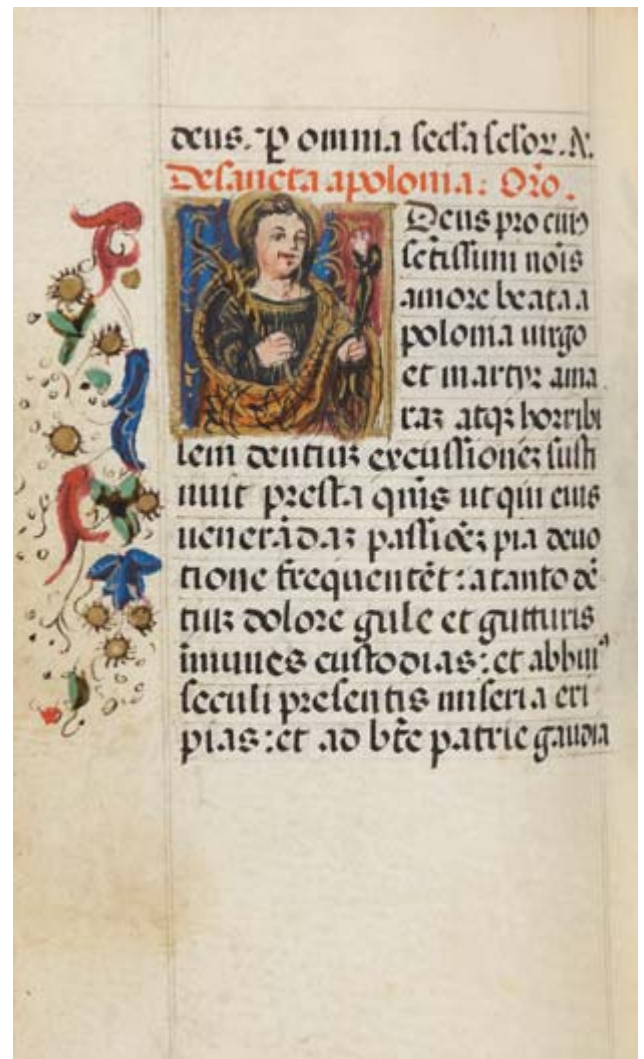 deus. P omnia secl'a secl'oꝝ. A.
De sancta apolonia: Or̃o.
Deus pro cuiꝰ
sc̃tissimi nois̃
amore beata a
polonia uirgo
et martyr ama
raꝫ atqꝫ horribi
lem dentiuꝫ excussioneꝫ susti
nuit presta qũs ut qui eius
ueneràdaꝫ passiõeꝫ pia deuo
tione frequentẽt: a tanto dẽ
tiuꝫ dolore gule et gutturis
ĩmunes custodias: et ab huiꝰ
seculi presentis miseria eri
pias: et ad bt̃e patrie gaudia